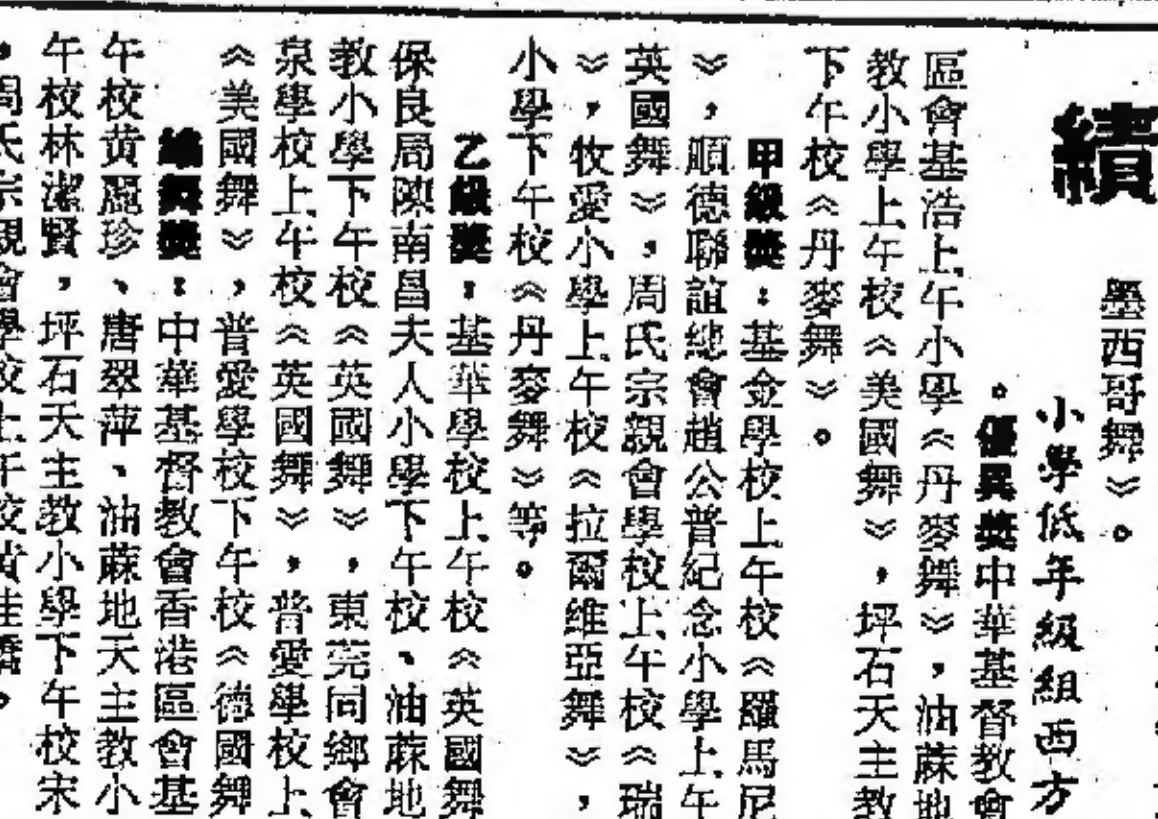 續
墨西哥舞》。
小學低年級組西方
。優異獎中華基督教會
區會基浩上午小學《丹麥舞》，油蔴地
教小學上午校《美國舞》，坪石天主教
下午校《丹麥舞》。
甲級獎：基金學校上午校《羅馬尼
》，順德聯誼總會趙公普紀念小學上午
英國舞》，周氏宗親會學校上午校《瑞
》，牧愛小學上午校《拉爾維亞舞》，
小學下午校《丹麥舞》等。
乙級獎：基華學校上午校《英國舞
保良局陳南昌夫人小學下午校、油蔴地
教小學下午校《英國舞》，東莞同鄉會
泉學校上午校《英國舞》，普愛學校上
《美國舞》，普愛學校下午校《德國舞
編舞獎：中華基督教會香港區會基
午校黃麗珍、唐翠萍、油蔴地天主教小
午校林潔賢，坪石天主教小學下午校宋
，周氏宗親會學校上午校黃佳喬。